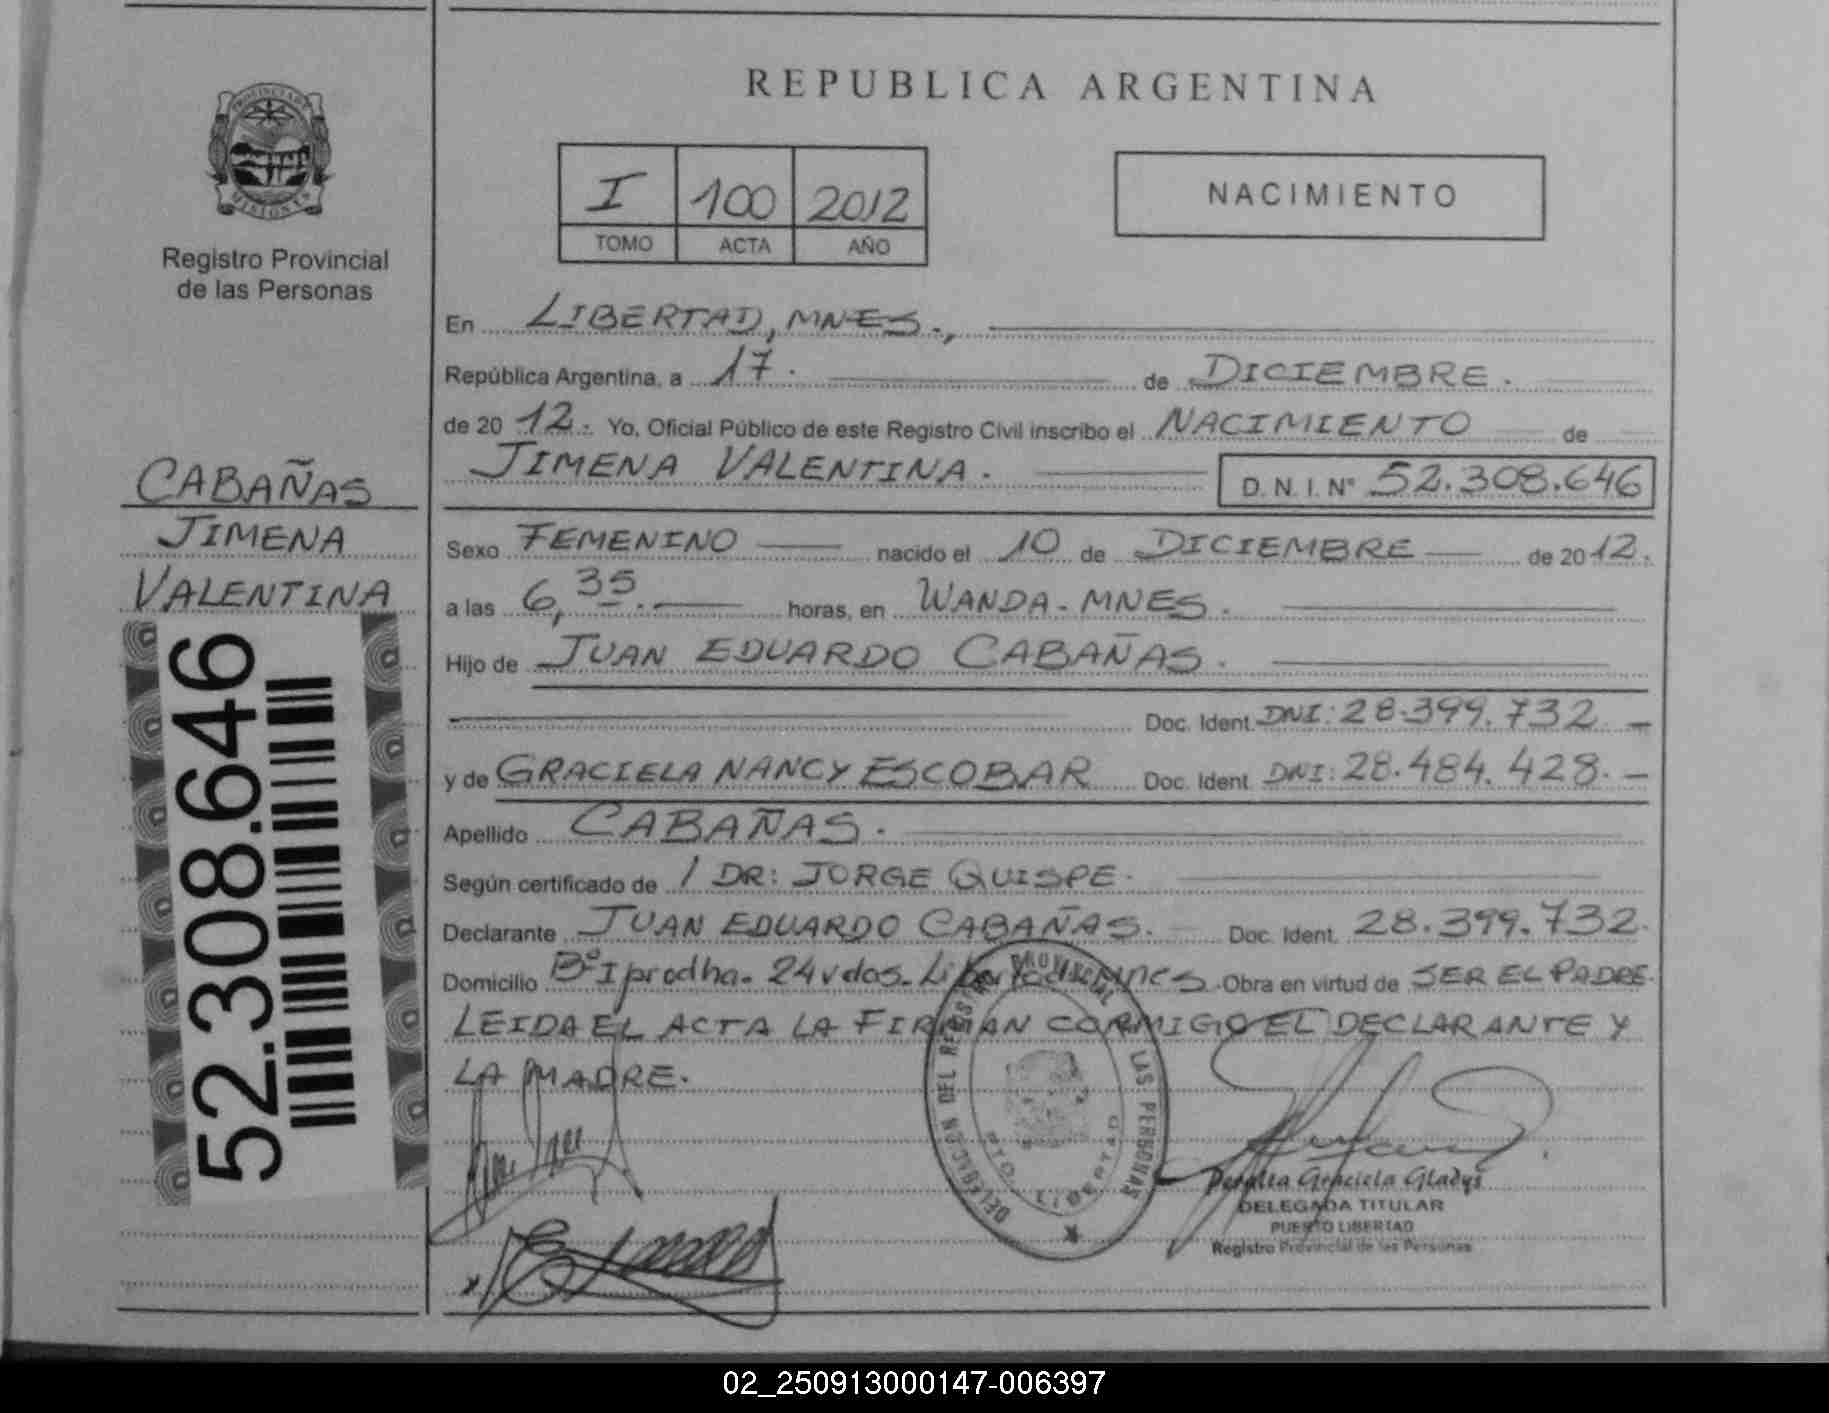 PROVINCIA DE
MISIONES
Registro Provincial
de las Personas
CABAÑAS
JIMENA
VALENTINA
52.308.646
REPUBLICA ARGENTINA
I 100 2012
TOMO ACTA AÑO
NACIMIENTO
En LIBERTAD, MNES.,
República Argentina, a 17. de DICIEMBRE.
de 2012. Yo, Oficial Público de este Registro Civil inscribo el NACIMIENTO de
JIMENA VALENTINA. D. N. I. Nº 52.308.646
Sexo FEMENINO nacido el 10 de DICIEMBRE de 2012.
a las 6,35. horas, en WANDA - MNES.
Hijo de JUAN EDUARDO CABAÑAS.
Doc. Ident. DNI: 28.399.732. -
y de GRACIELA NANCY ESCOBAR Doc. Ident. DNI: 28.484.428. -
Apellido CABAÑAS.
Según certificado de / DR: JORGE QUISPE.
Declarante JUAN EDUARDO CABAÑAS. Doc. Ident. 28.399.732.
Domicilio Bº Iprodha. 24 vdas. Libertad. Mnes. Obra en virtud de SER EL PADRE.
LEIDA EL ACTA LA FIRMAN CONMIGO EL DECLARANTE Y
LA MADRE.
DELEGACION DEL REGISTRO PROVINCIAL LAS PERSONAS
PTO. LIBERTAD
Peralta Graciela Gladys
DELEGADA TITULAR
PUERTO LIBERTAD
Registro Provincial de las Personas
02_250913000147-006397